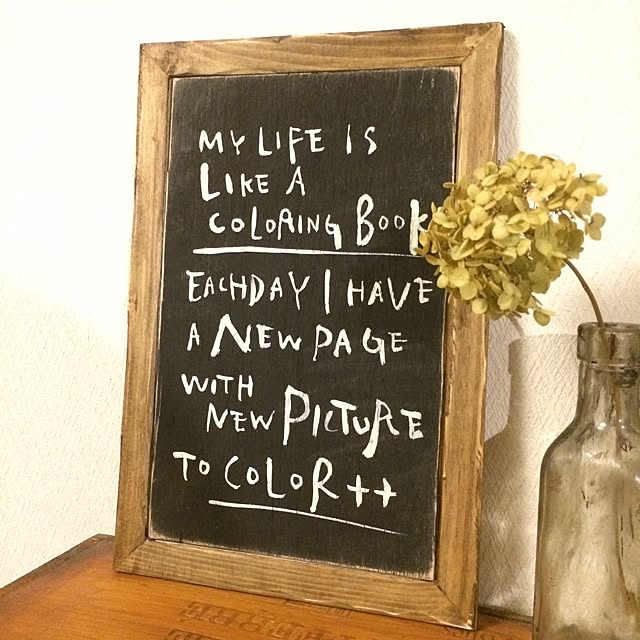 MY LIFE IS
LIKE A
COLORING BOOK
EACHDAY I HAVE
A NEW PAGE
WITH
NEW PICTURE
TO COLOR++